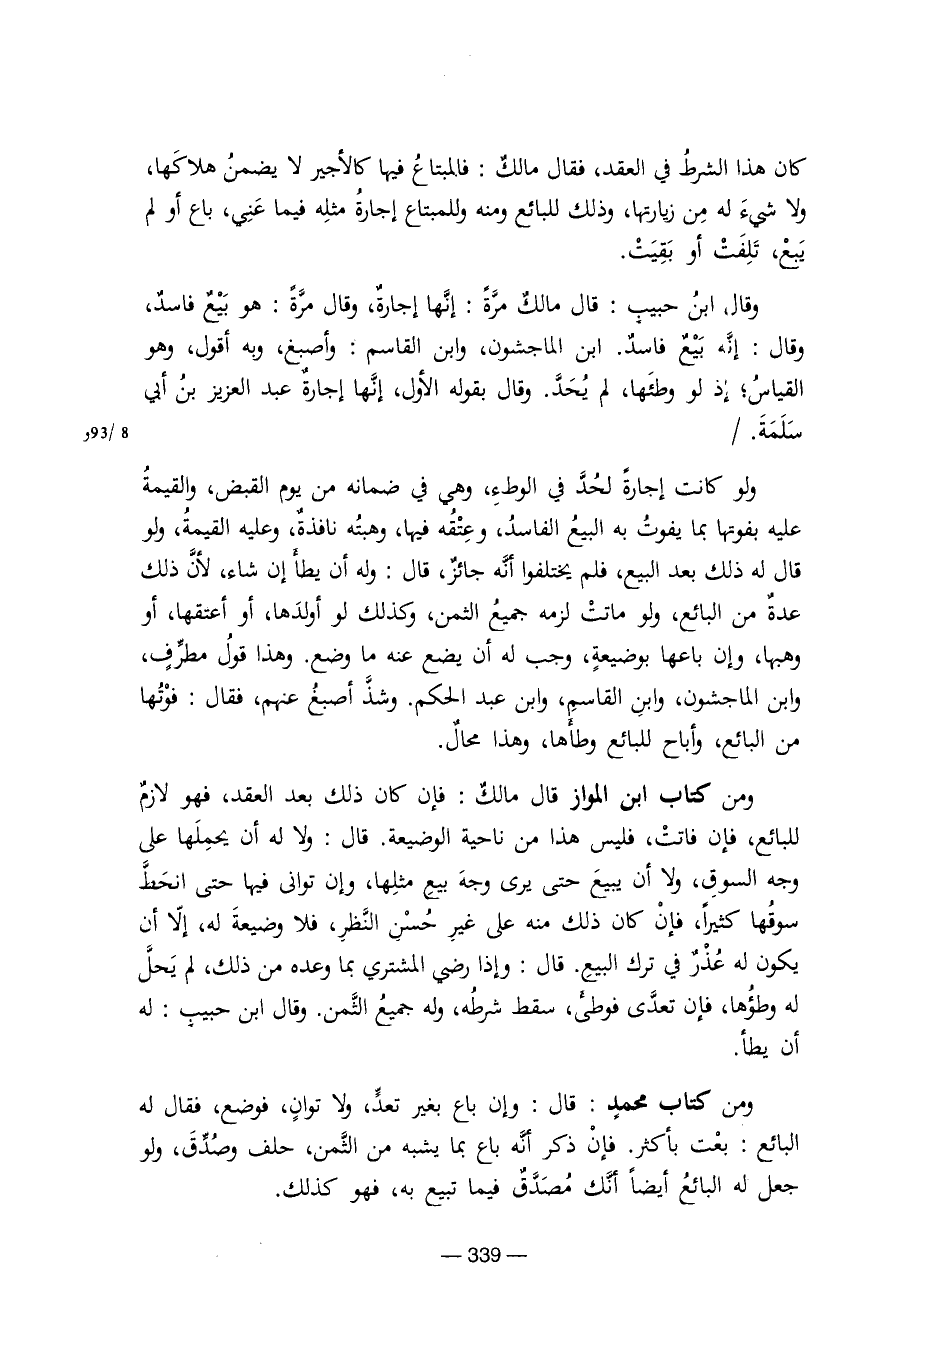 كان هذا الشرطُ في العقد، فقال مالكٌ : فالمبتاعُ فيها كالأجير لا يضمنُ هلاكَها،
ولا شيءَ له مِن زيارتها، وذلك للبائع ومنه وللمبتاع إجارةُ مثلِه فيما عَنِي، باع أو لم
يَبعْ، تَلِفَتْ أو بَقِيَتْ.
وقال ابنُ حبيبٍ : قال مالكٌ مرَّةً : إنَّها إجارةٌ، وقال مرَّةً : هو بَيْعٌ فاسدٌ،
وقال : إنَّه بَيْعٌ فاسدٌ. ابن الماجشون، وابن القاسم : وأصبغ، وبه أقول، وهو
القياسُ؛ إذ لو وطئَها، لم يُحَدَّ. وقال بقوله الأول، إنَّها إجارةٌ عبد العزيز بنُ أبي
سَلَمَةَ. / 8 /93و
ولو كانت إجارةً لحُدَّ في الوطءِ، وهي في ضمانه من يوم القبض، والقيمةُ
عليه بفوتها بما يفوتُ به البيعُ الفاسدُ، وعِتْقُه فيها، وهبتُه نافذةٌ، وعليه القيمةُ، ولو
قال له ذلك بعد البيع، فلم يختلفوا أنَّه جائزٌ، قال : وله أن يطأَ إن شاء، لأنَّ ذلك
عدةٌ من البائع، ولو ماتتْ لزمه جميعُ الثمن، وكذلك لو أولدَها، أو أعتقها، أو
وهبها، وإن باعها بوضيعةٍ، وجب له أن يضع عنه ما وضع. وهذا قولُ مطرِّفٍ،
وابن الماجشون، وابنِ القاسمِ، وابن عبد الحكم. وشذَّ أصبغُ عنهم، فقال : فوْتُها
من البائع، وأباح للبائع وطأَها، وهذا محالٌ.
ومن كتاب ابن المواز قال مالكٌ : فإن كان ذلك بعد العقد، فهو لازمٌ
للبائع، فإن فاتتْ، فليس هذا من ناحية الوضيعة. قال : ولا له أن يحمِلَها على
وجه السوقِ، ولا أن يبيعَ حتى يرى وجهَ بيعِ مثلِها، وإن توانى فيها حتى انحَطَّ
سوقُها كثيراً، فإنْ كان ذلك منه على غيرِ حُسْنِ النَّظرِ، فلا وضيعةَ له، إلَّا أن
يكون له عُذْرٌ في ترك البيعِ. قال : وإذا رضي المشتري بما وعده من ذلك، لم يَحلَّ
له وطؤُها، فإن تعدَّى فوطئَ، سقط شرطُه، وله جميعُ الثَّمن. وقال ابن حبيبٍ : له
أن يطأَ.
ومن كتاب محمدٍ : قال : وإن باع بغير تعدٍّ، ولا توانٍ، فوضع، فقال له
البائع : بعْت بأكثر. فإنْ ذكر أنَّه باع بما يشبه من الثَّمن، حلف وصُدِّقَ، ولو
جعل له البائعُ أيضاً أنَّك مُصَدَّقٌ فيما تبيع به، فهو كذلك.
— 339 —